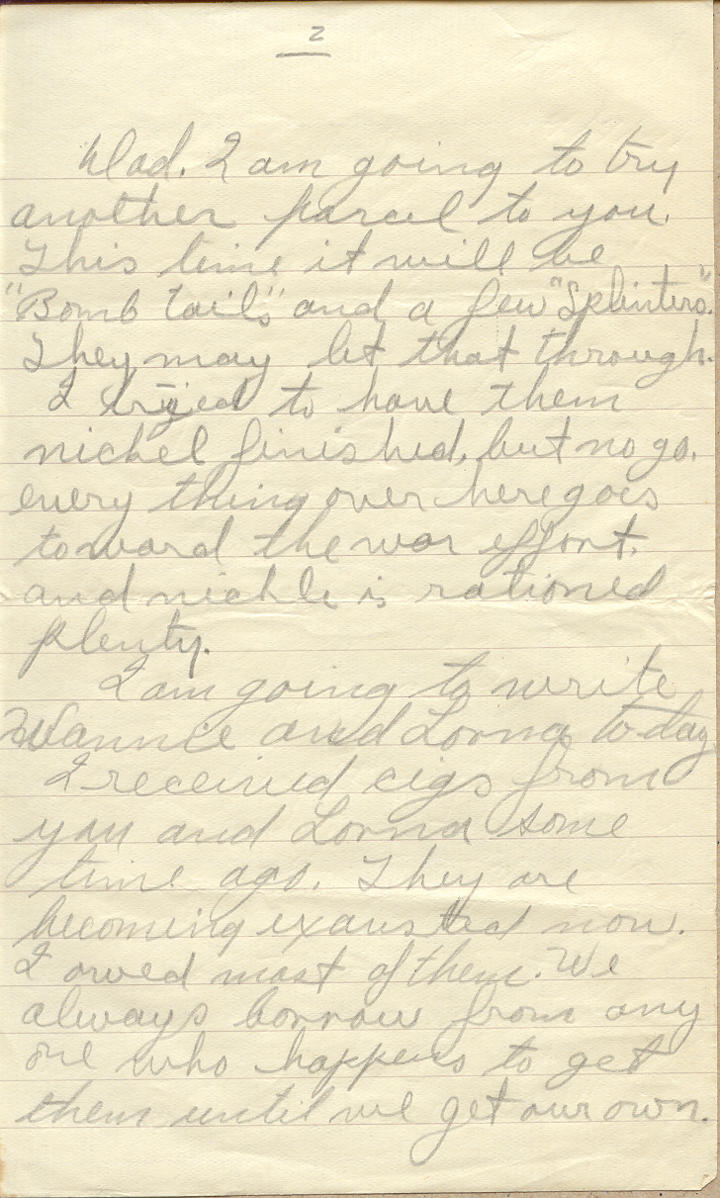 2
Dad. I am going to try
another parcel to you.
This time it will be
"Bomb tails" and a few "Splinters".
They may let that through.
I tryied to have them
nichel finished, but no go.
every thing over here goes
toward the war effort.
and nichle is rationed
plenty.
I am going to write
Wannie and Lorna today
I received cigs from
you and Lorna some
time ago. They are
becoming exausted now.
I owed most of them. We
always borrow from any
one who happens to get
them until we get our own.